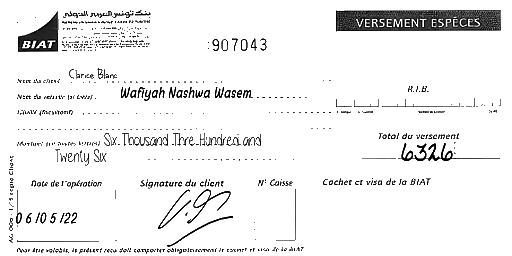 بنك تونس العربي الدولي
BIAT
VERSEMENT ESPÈCES
907043
Nom du client Clarice Blanc
Nom du verseur (si tiers) Wafiyah Nashwa Wasem
R.I.B.
Libellé (facultatif)
Montant (en toutes lettres) Six Thousand Thre Hundred and
Twenty Six
Total du versement
6326
Date de l'opération
Signature du client
N° Caisse
Cachet et visa de la BIAT
06/05/22
Pour être valable, le présent reçu doit comporter obligatoirement le cachet et visa de la BIAT